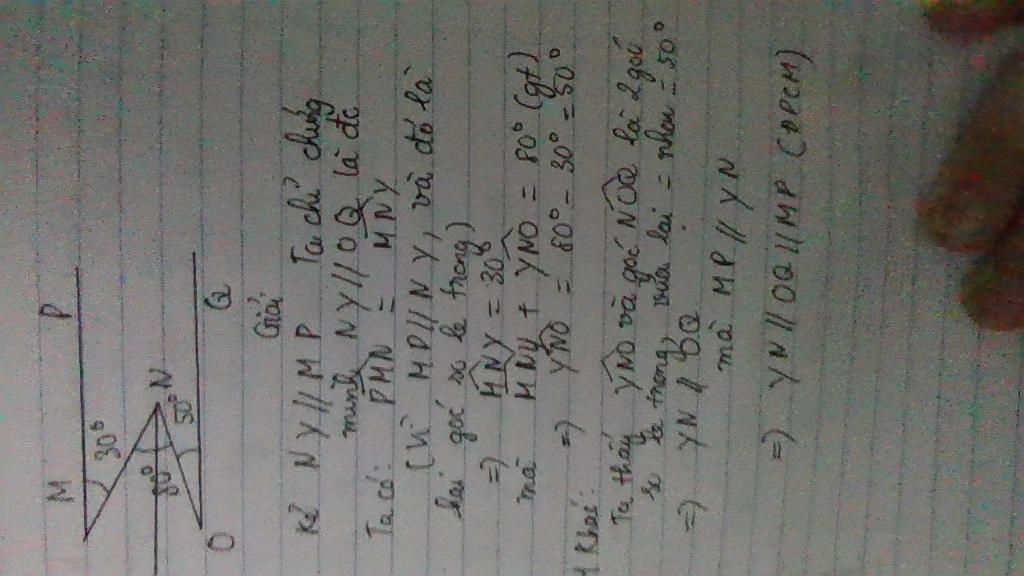 M P
30°
80° N
50°
O Q
Giải
Kẻ Ny // MP Ta chỉ chứng
minh Ny // OQ là đc
Ta có: PMN = MNy
(Vì MP // Ny, và đó là
hai góc so le trong)
=) MNy = 30°
mà MNy + yNO = 80° (gt)
=) yNO = 80° - 30° = 50°
Ta thấy yNO và góc NOQ là 2 góc
so le trong, mà lại = nhau = 50°
=) yN // OQ
mà MP // yN
=) yN // OQ // MP (DPCM)